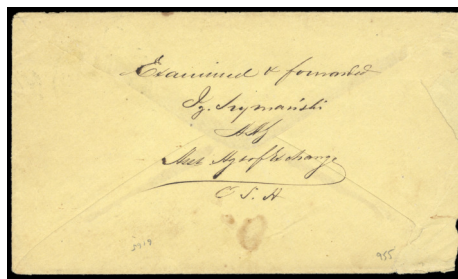 Examined & forwarded
Ig. Szymański
Asst Agt of Exchange
C S A
2919
955